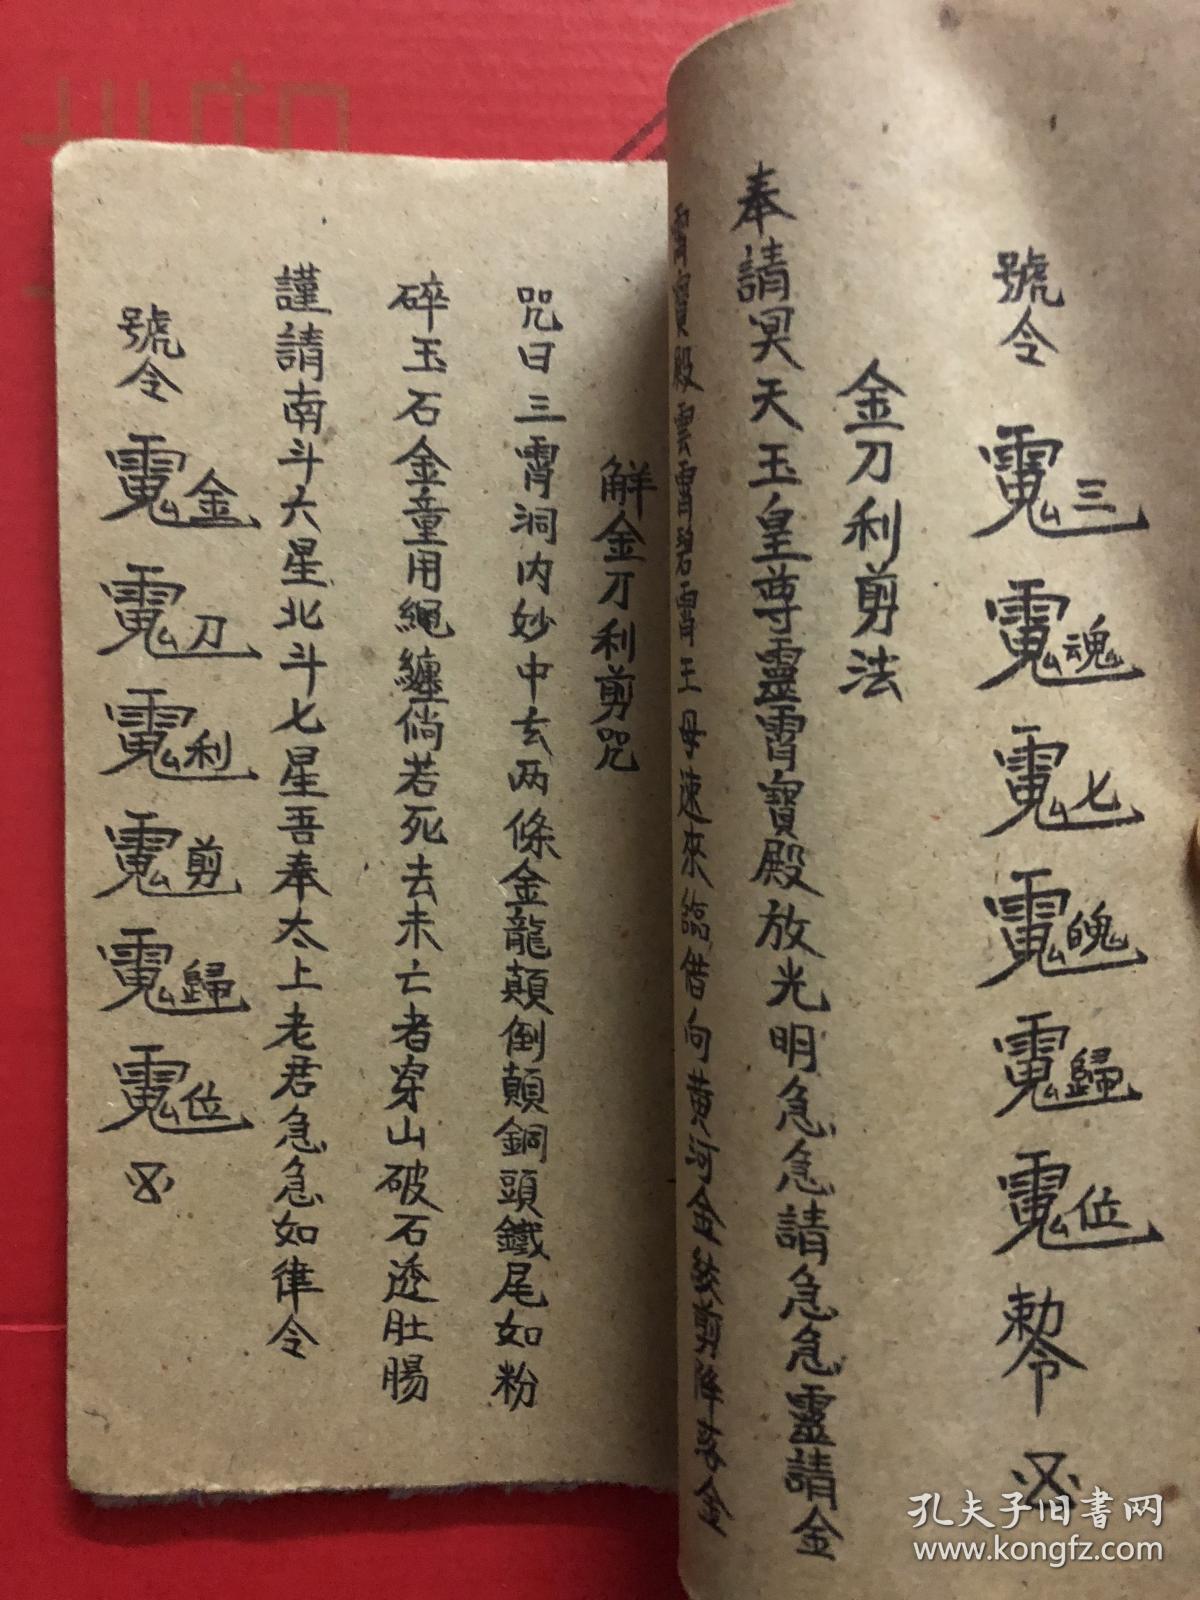 號令三魂七魄歸位勅令
金刀利剪法
奉請冥天玉皇尊靈霄寶殿放光明急急請急急靈請金
霄寶殿雲霄碧霄王母速來臨借向黄河金絞剪降落金
解金刀利剪咒
咒曰三霄洞内妙中玄两條金龍顛倒顛銅頭鐵尾如粉
碎玉石金童用繩纏倘若死去未亡者穿山破石透肚腸
謹請南斗六星北斗七星吾奉太上老君急急如律令
號令金刀利剪歸位
孔夫子旧书网
www.kongfz.com